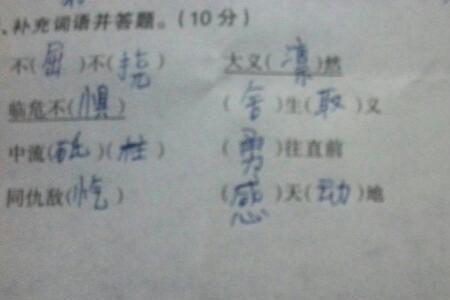 、补充词语并答题。(10分)
不(屈)不(挠) 大义(凛)然
临危不(惧) (舍)生(取)义
中流(砥)(柱) (勇)往直前
同仇敌(忾) (感)天(动)地